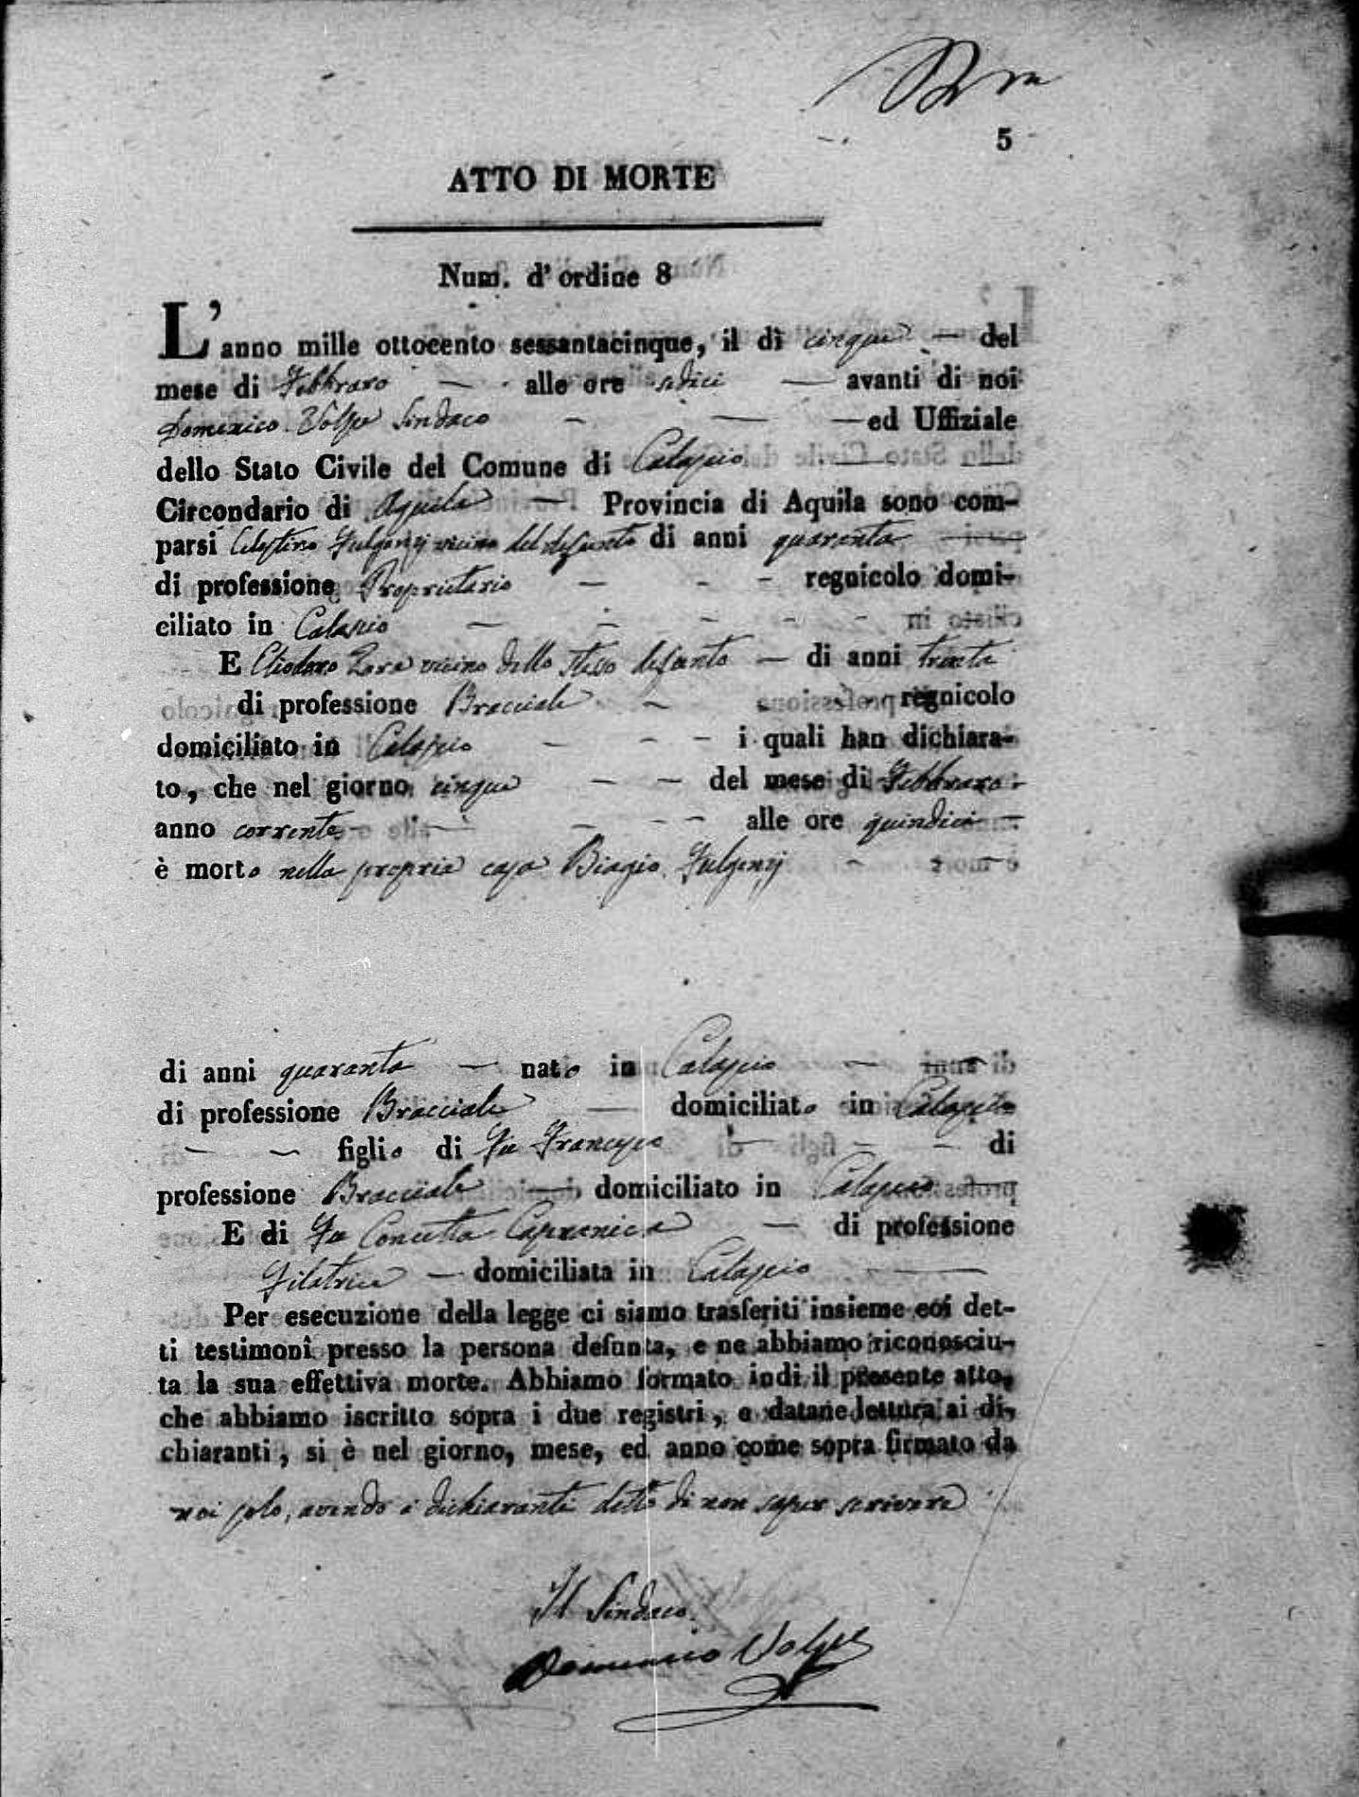 5
ATTO DI MORTE
Num. d'ordine 8
L'anno mille ottocento sessantacinque, il dì cinque — del
mese di Febbraro — alle ore sedici — avanti di noi
Domenico Volpe Sindaco — — ed Uffiziale
dello Stato Civile del Comune di Calascio
Circondario di Aquila — Provincia di Aquila sono com-
parsi Celestino Fulgenzj vicino del defunto di anni quaranta
di professione Proprietario — - - regnicolo domi-
ciliato in Calascio — - - - -
E Eliodoro Zara vicino dello stesso defunto — di anni trenta
di professione Bracciale - regnicolo
domiciliato in Calascio - - - i quali han dichiara-
to, che nel giorno cinque — — del mese di Febbraro
anno corrente - - - alle ore quindici —
è morto nella propria casa Biagio Fulgenzj - -
di anni quaranta — nato in Calascio —
di professione Bracciale — domiciliato in Calascio
— — figlio di Fu Francesco — - - di
professione Bracciale — domiciliato in Calascio
E di Fu Concetta Capranica — di professione
Filatrice — domiciliata in Calascio —
Per esecuzione della legge ci siamo trasferiti insieme coi det-
ti testimonî presso la persona defunta, e ne abbiamo riconosciu-
ta la sua effettiva morte. Abbiamo formato indi il presente atto,
che abbiamo iscritto sopra i due registri, e datane lettura ai di-
chiaranti, si è nel giorno, mese, ed anno come sopra firmato da
noi solo, avendo i dichiaranti detto di non saper scrivere
Il Sindaco
Domenico Volpe